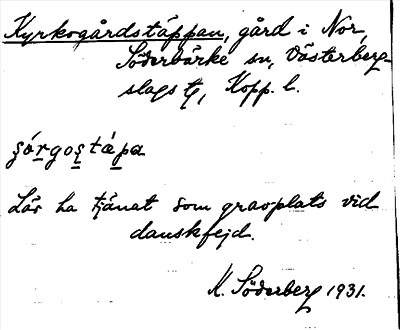 Kyrkogårdstäppan, gård i Nor,
Söderbärke sn, Västerberg-
slags tg, Kopp. l.
şórgoştápa
Lär ha tjänat som gravplats vid
danskfejd.
K. Söderberg 1931.